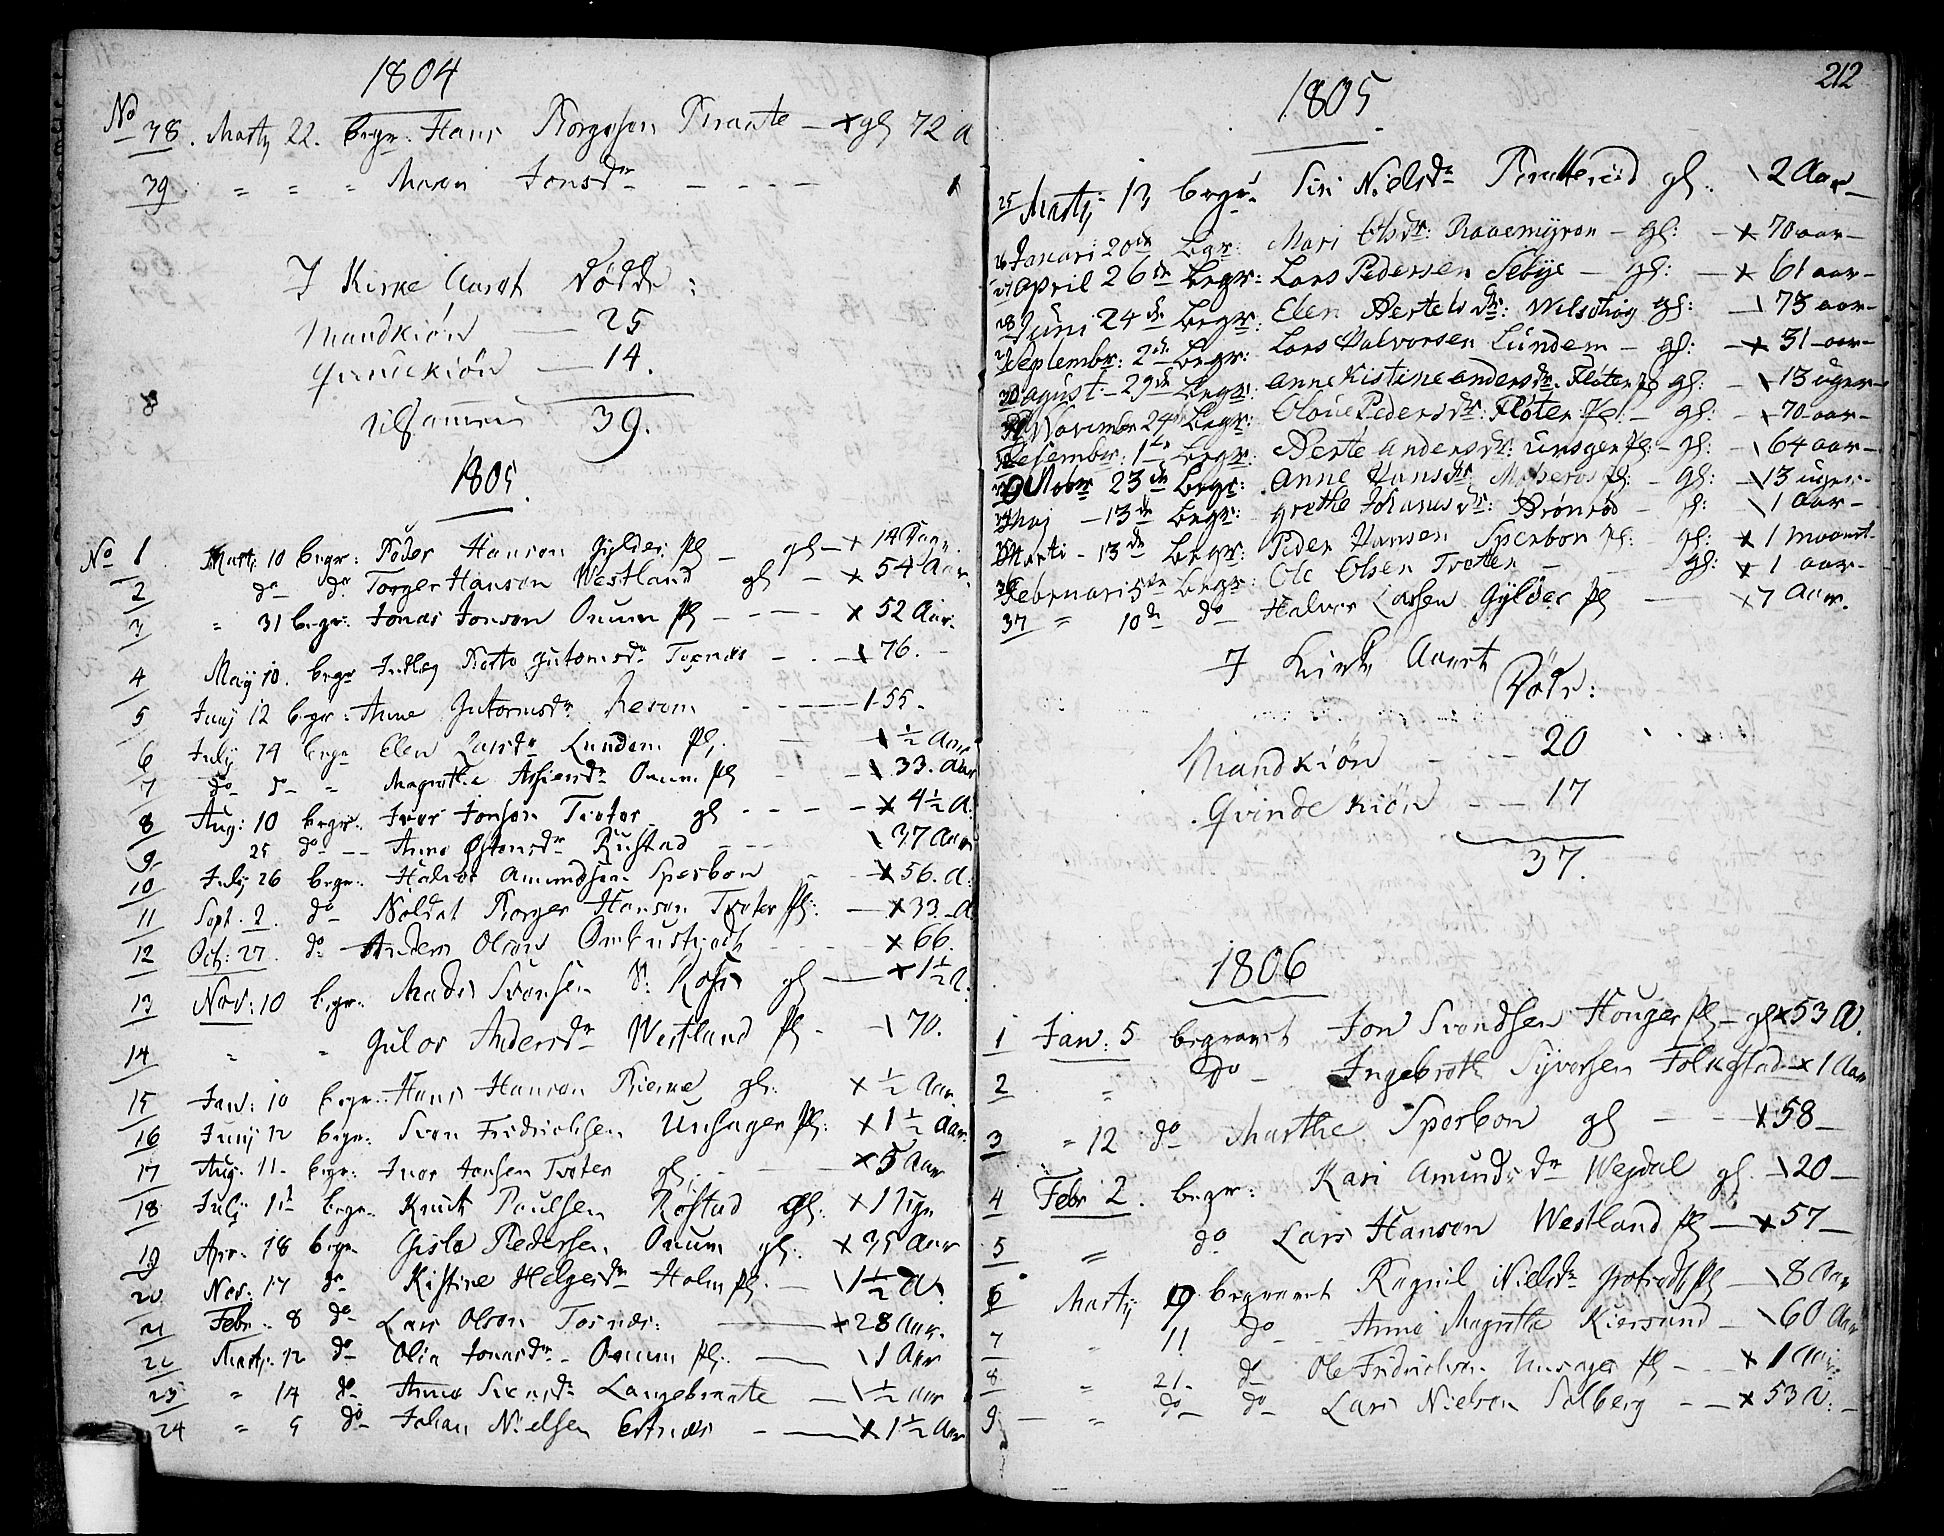 1804
No
38. Martj 22. begr: Hans Borgesen Braate — x gl 72 A
39 " " " Mari Jonsdr — — — —
I Kirke Aaret Dödde:
Mandkiön — 25
Qvindekiön — 14.
tilsammen 39.
1805.
No 1 Martj 10 begr: Peder Hansen Gylder pl — gl — x 14 Dage.
2 do do Torger Hanson Westland gl — x 54 Aar.
3 " 31 begr: Jonas Jonson Onum pl — — — x 52 Aar.
4 May 10. begr Gutormsdr Tvenæs — . — \ 76. —
5 Junij 12 begr: Anne Gutormsdr — — — — 1 55 —
6 Julij 14 begr Elen Larsdr Lundem pl. — \ ½ Aar
7 do d — " Magrethe Onum pl — — \ 33. Aar
8 Aug: 10 begr: Iver Jonsen Tveter gl — — — x 4½ A.
9 25 do — — Anne Östensdr Rustad — — — \ 37 Aar
10 Julij 26 begr: Halvor Amundsen Sperbon — x 56. A.
11 Sept. 2. do Soldat Borger Hanson Tveter pl: — x 33 A
12 Oct: 27. do Anders Olsen — — x 66.
13 Nov: 10 begr: Mads Svensen gl — x 1½ A.
14 " " Gulor Andersdr Westland pl — \ 70.
15 Jan: 10 begr: Hans Hanson gl: x ½ Aar
16 Junij 12 begr: Sven Fridrichsen Unsager pl: x 1½ Aar
17 Aug. 11 — begr: Iver Jonsen Tveter gl: — — x 5 Aar
18 Julj 1t begr: Knut Paulsen Röstad gl: x 1 Uge
19 Apr. 18 begr Gisle Pedersen Onum gl: x 35 Aar
20 Nov: 17 do Kistine Helgesdr Holm pl. — \ 1½ A.
21 Febr: 8 do Lars Olson Tosnæs: — x 28 Aar.
22 Martj. 12 do Olia Jonasdr — Onum pl: — \ 1 Aar
23 " 14 do Anne Svensdr Langebraate — \ ½ Aar
24 " 5 do Johan Nielsen Ertnæs — — x 1½ Aar
212
1805.
25 Martj 13 begr: Siri Nielsdr gl: \ 2 Aar —
26 Januari 20de begr: Mari Olsdr: Raaemyron — gl: — x 70 aar —
27 April 26de begr: Lars Pedersen Sebye — gl: — x 61 aar —
28 Juni 24de begr: Elen Bertelsdr: gl: — \ 73 aar —
29 September: 2de begr: Lars Halvorsen Lundem — gl: — x 31 aar —
30 agust — 29de begr: anne Kistine andersdr. Fløter pl gl: — \ 13 uger —
31 November 24 begr: Oloue Pedersdr: Fløter pl: — gl: — \ 70 aar —
32 Desember: 1te begr: Berte andersdr: unsger pl: — gl: \ 64 aar —
33 October 23de begr: anne Hansdr pl: — gl: — \ 13 uger —
34 Maj — 13de begr: grethe Johanesdr: Brönrod — gl: \ 1 Aar —
35 Marti — 13de begr: Peder Hansen Sperbon pl: — gl: x 1 maanet —
36 Februari 5te begr: Ole Olsen Tveter — — — gl: x 1 aar —
37 " 10de do Halvor Larsen Gylder pl — x 7 Aar.
I Kirke Aaret
Döde:
Mandkiön — — 20
Qvindekiön — — 17
37.
1806
1 Jan: 5 begravet Jon Svendsen Houger pl — gl x 53 A.
2 " do — Ingebreth Syversen Folkestad — x 1 Aar
3 " 12 do Marthe Sperbon gl — — x 58 —
4 Febr 2. begr: Kari Amundsdr Wejdal gl. — \ 20 —
5 " do Lars Hanson Westland pl — x 57 —
6 Martij 9 begravet Ragnil Nielsdr pl — \ 8 Aar
7 " 11 do Anne Magrethe Kiersund — \ 60 Aar
8 " 21 — do Ole Fridrichsen Unsager pl — — x 1 Aar
9 — " do do Lars Nielsen Solberg — — x 53 A: —